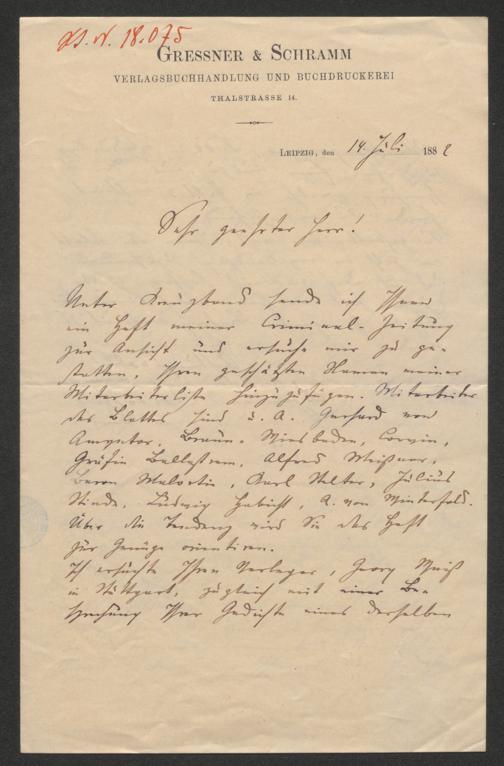 J. N. 18.075
GRESSNER & SCHRAMM
VERLAGSBUCHHANDLUNG UND BUCHDRUCKEREI
THALSTRASSE 14.
LEIPZIG, den 14. Juli 1882
Sehr geehrter Herr!
Unter Kreuzband sende ich Ihnen
ein Heft meiner Criminal-Zeitung
zur Ansicht und ersuche mir zu ge-
statten, Ihren geschätzten Namen meiner
Mitarbeiterliste hinzuzufügen. Mitarbeiter
des Blattes sind u. A. Gerhard von
Amyntor, Braun-Wiesbaden, Corvin,
Gräfin Ballestrem, Alfred Meißner,
Baron Malortie, Karl Julius
Stinde, Ludwig Habicht, A. von Winterfeld.
Über die Tendenz wird Sie das Heft
zur Genüge orientiren.
Ich ersuchte Ihren Verleger, Georg Weiß
in Stuttgart, zugleich mit einer Be-
sprechung Ihrer Gedichte eines derselben